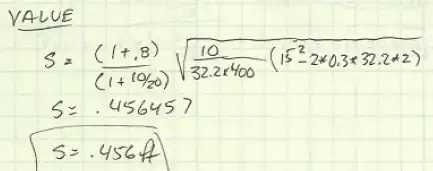 VALUE
S = (1+.8)/(1+10/20) √(10/(32.2x400) (15²-2*0.3*32.2*2))
S = .456457
S = .456 ft